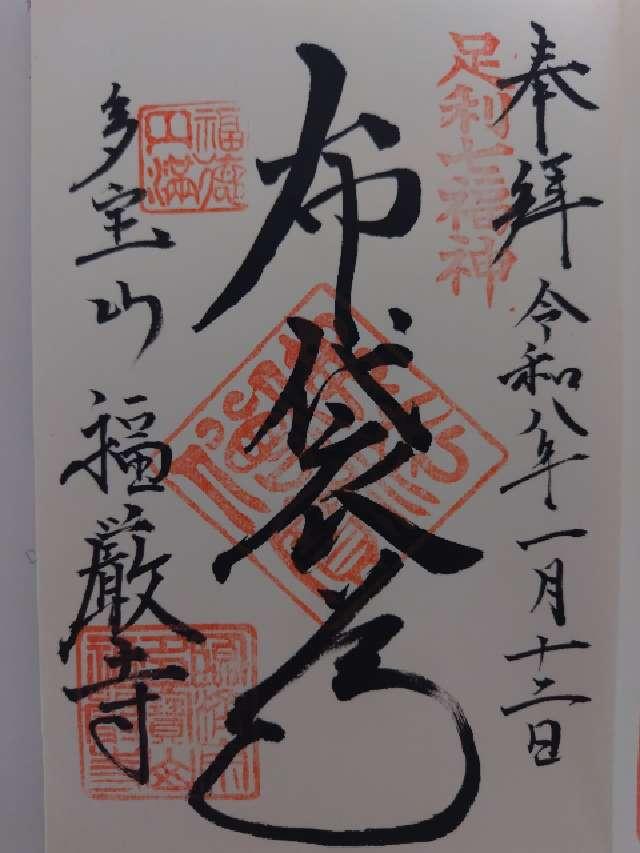 奉拝
令和八年一月十二日
足利七福神
布袋尊
福寿円満
多宝山
福厳寺